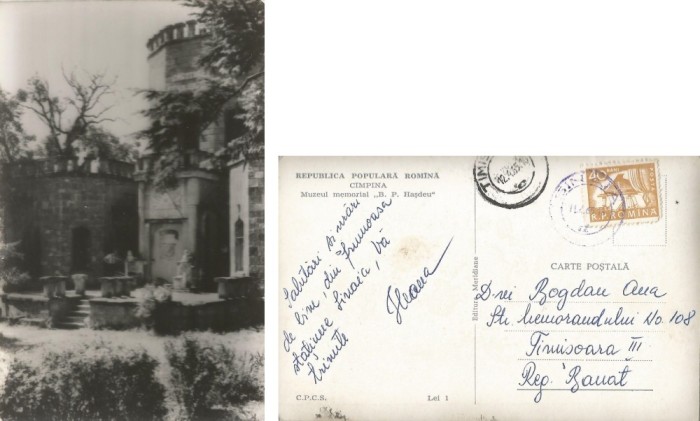 REPUBLICA POPULARĂ ROMÎNĂ
CÎMPINA
Muzeul memorial „B. P. Haşdeu"
Salutări și urări
de bine, din frumoasa
stațiune Sinaia, vă
trimite
Ileana
C.P.C.S.
Lei 1
Editura Meridiane
TIMIȘ
40
POSTA
R.P. ROMINA
CARTE POŞTALĂ
D-rei Bogdan Ana
Str. Memorandului No. 108
Timișoara III
Reg. Banat